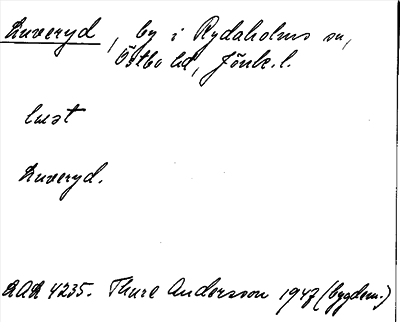 Luveryd, by i Rydaholms sn,
Östbo hd, Jönk. l.
Luveryd.
4235. Thure Andersson 1947 (bygdem.)